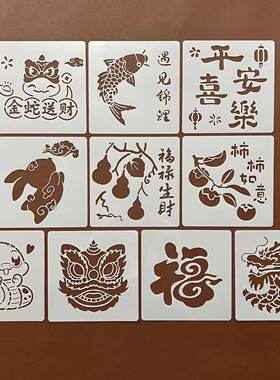 金蛇送财
遇见锦鲤
平安
喜樂
福禄
生財
柿柿
如意
福